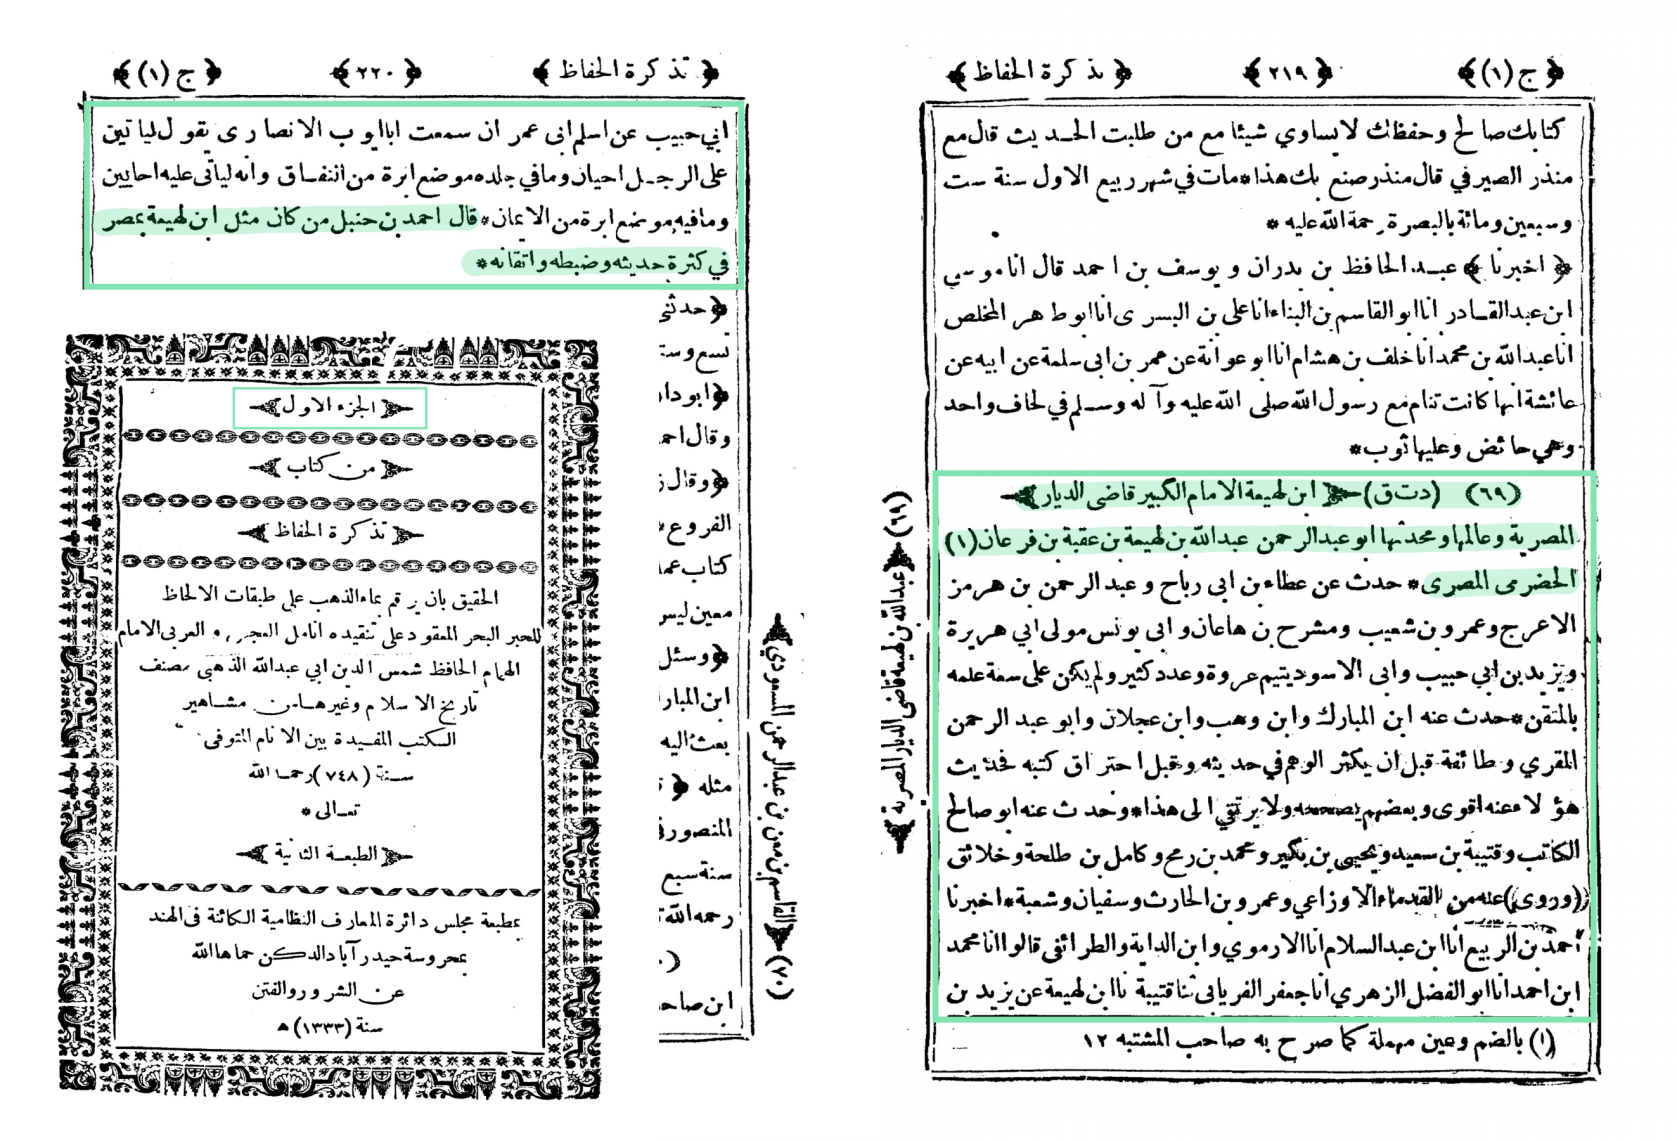 ج (١)
٢١٩
تذكرة الحفاظ
كتابك صالح وحفظك لايساوي شيئا مع من طلبت الحديث قال مع
منذر الصيرفي قال منذر صنع بك هذا * مات في شهر ربيع الاول سنة ست
وسبعين ومائة بالبصرة رحمة الله عليه *
﴿ اخبرنا ﴾ عبد الحافظ بن بدران و يوسف بن احمد قال انا موسى
ابن عبد القادر انا ابو القاسم بن البناء انا على بن البسرى انا ابو طاهر المخلص
انا عبد الله بن محمد انا خلف بن هشام انا ابو عوانة عن عمر بن ابى سلمة عن ابيه عن
عائشة انها كانت تنام مع رسول الله صلى الله عليه وآله وسلم في لحاف واحد
وهي حائض وعليها ثوب *
(٦٩) (دت ق) ابن لهيعة الامام الكبير قاضى الديار
المصرية وعالمها ومحدثها ابو عبد الرحمن عبد الله بن لهيعة بن عقبة بن فرعان (١)
الحضرمى المصرى * حدث عن عطاء بن ابى رباح و عبد الرحمن بن هرمز
الاعرج وعمرو بن شعيب ومشرح بن هاعان و ابي يونس مولى ابي هريرة
ويزيد بن ابي حبيب وابى الاسود يتيم عروة وعدد كثير ولم يكن على سعة علمه
بالمتقن * حدث عنه ابن المبارك وابن وهب وابن عجلان وابو عبد الرحمن
المقري وطائفة قبل ان يكثر الوهم في حديثه وقبل احتراق كتبه فحديث
هؤلاء عنه اقوى وبعضهم يصححه ولا يرتقي الى هذا * وحدث عنه ابو صالح
الكاتب وقتيبة بن سعيد ويحيى بن بكير ومحمد بن رمح وكامل بن طلحة وخلائق
(وروى) عنه من القدماء الاوزاعي وعمرو بن الحارث وسفيان وشعبة * اخبرنا
احمد بن الربيع انا ابن عبد السلام انا الارموي وابن الداية والطرائفى قالوا انا محمد
ابن احمد انا ابو الفضل الزهري انا جعفر الفريابى ثنا قتيبة نا ابن لهيعة عن يزيد بن
(١) بالضم وعين مهملة كما صرح به صاحب المشتبه ١٢
عبد الله بن لهيعة قاضى الديار المصرية (٦٩)
تذكرة الحفاظ
٢٢٠
ج (١)
ابي حبيب عن اسلم ابى عمران سمعت ابا ايوب الانصارى يقول لياتين
على الرجل احيان وما في جلده موضع ابرة من النفاق وانه لياتى عليه احايين
وما فيه موضع ابرة من الايمان * قال احمد بن حنبل من كان مثل ابن لهيعة بمصر
في كثرة حديثه وضبطه واتقانه *
﴿ حدثني
تسع وست
﴿ ابوداو
وقال احم
﴿ وقال
الفروع *
كتاب عم
معين ليس
﴿ وسئل
ابن المبار
بعث اليه
مثله ﴿
المنصور
سنة سبع
رحمه الله
ابن صاح
القاسم بن معن بن عبد الرحمن المسعودي (٧٠)
الجزء الاول
من كتاب
تذكرة الحفاظ
الحقيق بان يرقم بماء الذهب على طبقات الالحاظ
للحبر البحر المعقود على تنقيده انامل العجمي و العربى الامام
الهمام الحافظ شمس الدين ابي عبد الله الذهبى مصنف
تاريخ الاسلام وغيرها من مشاهير
الكتب المفيدة بين الانام المتوفى
سنة (٧٤٨) رحمه الله
تعالى *
الطبعة الثانية
بمطبعة مجلس دائرة المعارف النظامية الكائنة فى الهند
بمحروسة حيدر آباد الدكن حماها الله
عن الشرور والفتن
سنة (١٣٣٣) ه